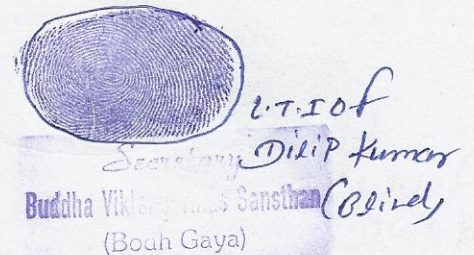 L.T.I of
Dilip Kumar
(Blind)
Secretary
Buddha Viklang Sansthan
(Bodh Gaya)